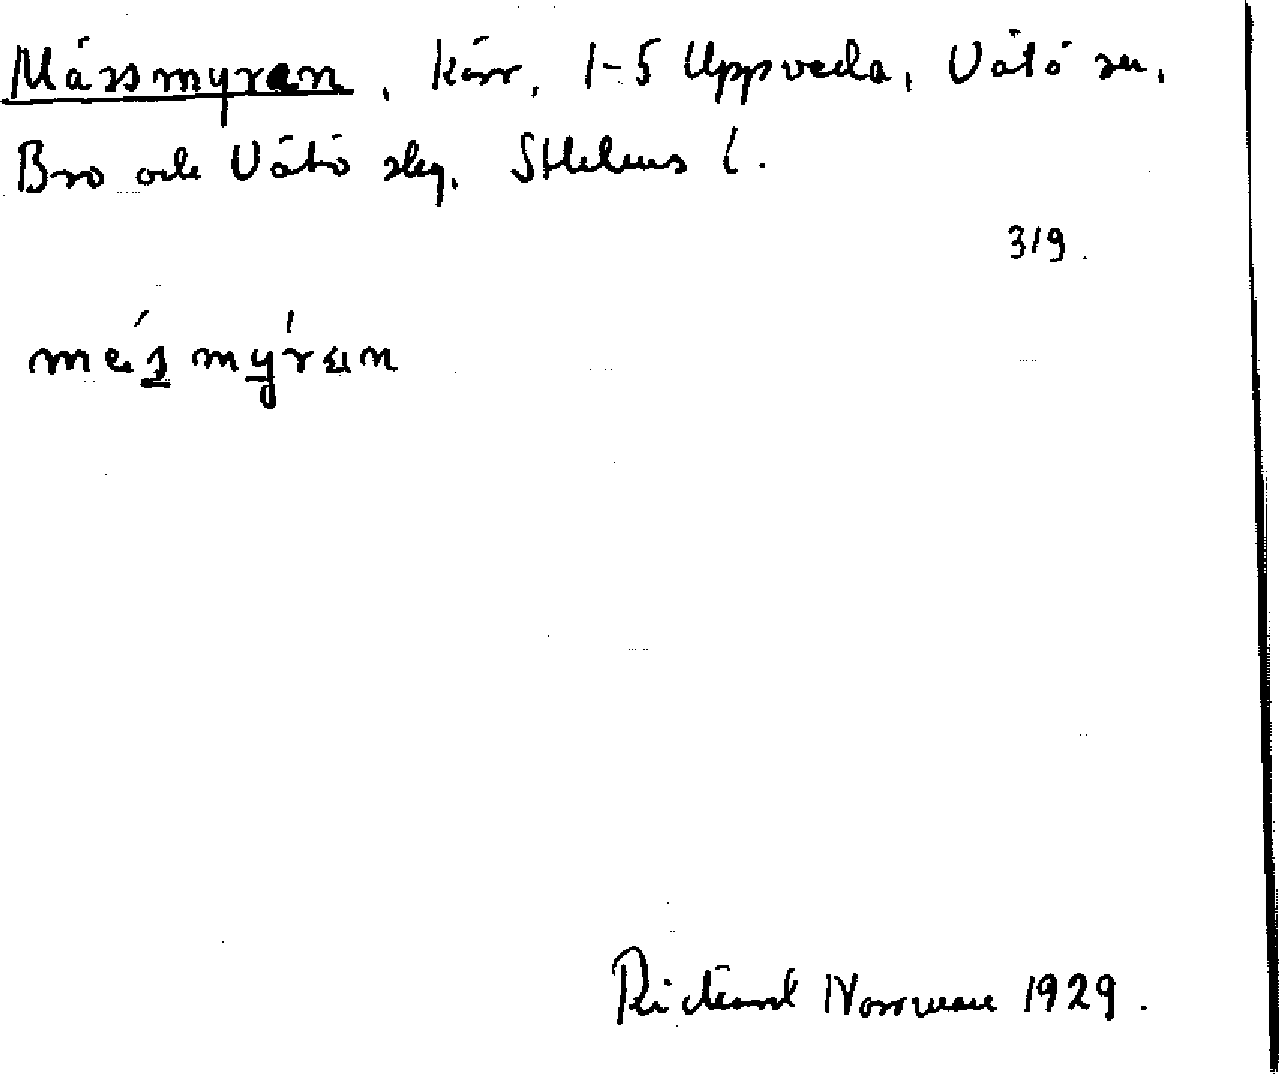 Mårsmyran, kärr, 1-5 Uppveda, Vätö sn,
Bro och Vätö slg. Sthlms l.
319.
Rickard Norrman 1929.